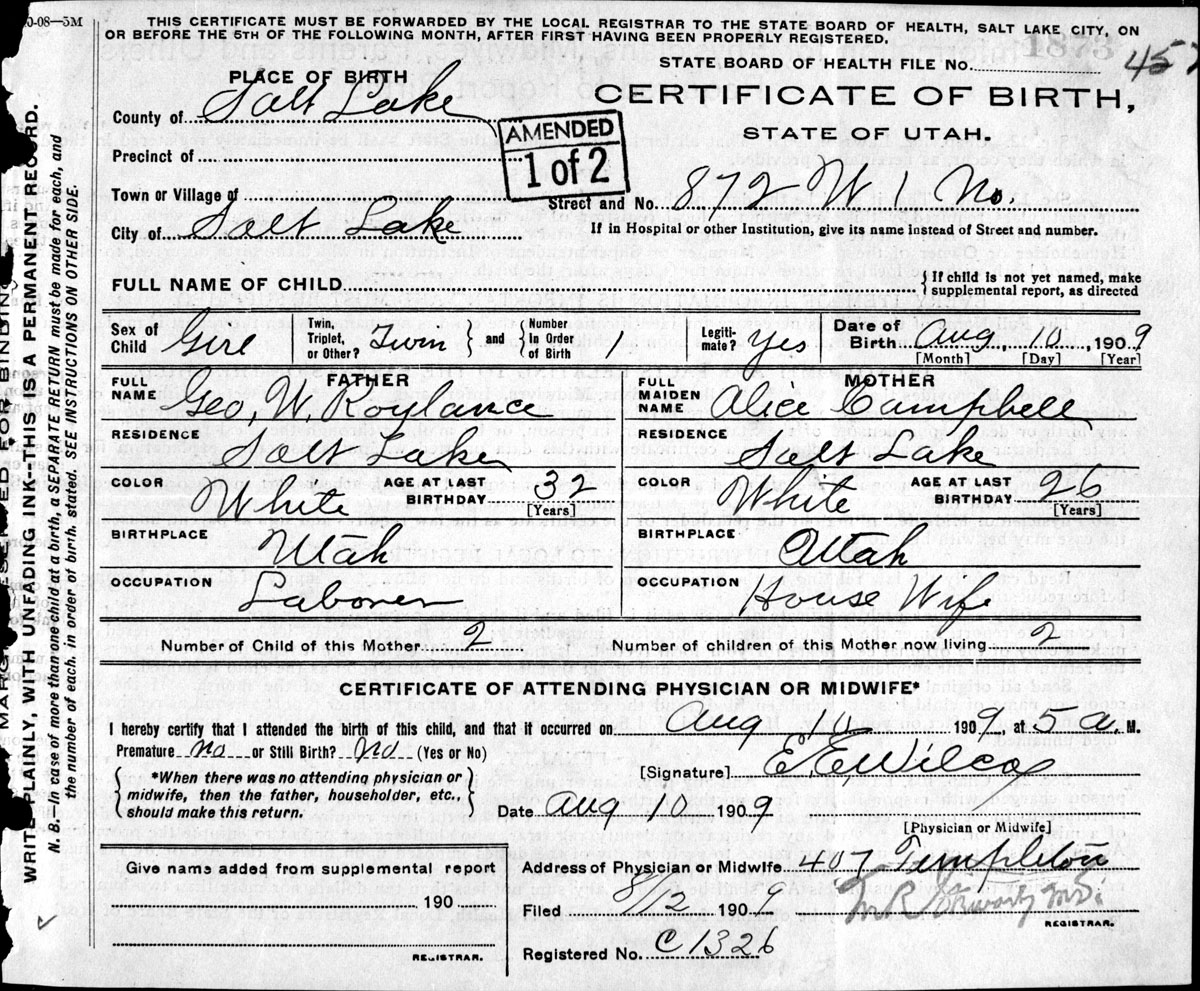 0-08—5M
THIS CERTIFICATE MUST BE FORWARDED BY THE LOCAL REGISTRAR TO THE STATE BOARD OF HEALTH, SALT LAKE CITY, ON
OR BEFORE THE 5TH OF THE FOLLOWING MONTH, AFTER FIRST HAVING BEEN PROPERLY REGISTERED.
STATE BOARD OF HEALTH FILE No. 45
PLACE OF BIRTH
CERTIFICATE OF BIRTH,
STATE OF UTAH.
County of Salt Lake
AMENDED
1 of 2
Precinct of
Town or Village of
Street and No. 872 W 1 No.
City of Salt Lake
If in Hospital or other Institution, give its name instead of Street and number.
FULL NAME OF CHILD
{ If child is not yet named, make
supplemental report, as directed
Sex of Child Girl
Twin, Triplet, or Other? Twin } and { Number in Order of Birth 1
Legitimate? Yes
Date of Birth Aug. 10, 1909
[Month] [Day] [Year]
FATHER
FULL NAME Geo. W. Roylance
RESIDENCE Salt Lake
COLOR White AGE AT LAST BIRTHDAY 32
[Years]
BIRTHPLACE Utah
OCCUPATION Laborer
MOTHER
FULL MAIDEN NAME Alice Campbell
RESIDENCE Salt Lake
COLOR White AGE AT LAST BIRTHDAY 26
[Years]
BIRTHPLACE Utah
OCCUPATION House Wife
Number of Child of this Mother 2 Number of children of this Mother now living 2
CERTIFICATE OF ATTENDING PHYSICIAN OR MIDWIFE*
I hereby certify that I attended the birth of this child, and that it occurred on Aug 10 1909, at 5 a. M.
Premature no or Still Birth? no (Yes or No)
{ *When there was no attending physician or
midwife, then the father, householder, etc.,
should make this return. }
[Signature] E. E. Wilcox
Date Aug 10 1909
[Physician or Midwife]
Give name added from supplemental report
190
REGISTRAR.
Address of Physician or Midwife 407 Templeton
Filed 8/12 1909
REGISTRAR.
Registered No. C1326
MARGIN RESERVED FOR BINDING
WRITE PLAINLY, WITH UNFADING INK--THIS IS A PERMANENT RECORD.
N. B.—In case of more than one child at a birth, a SEPARATE RETURN must be made for each, and
the number of each, in order of birth, stated. SEE INSTRUCTIONS ON OTHER SIDE.